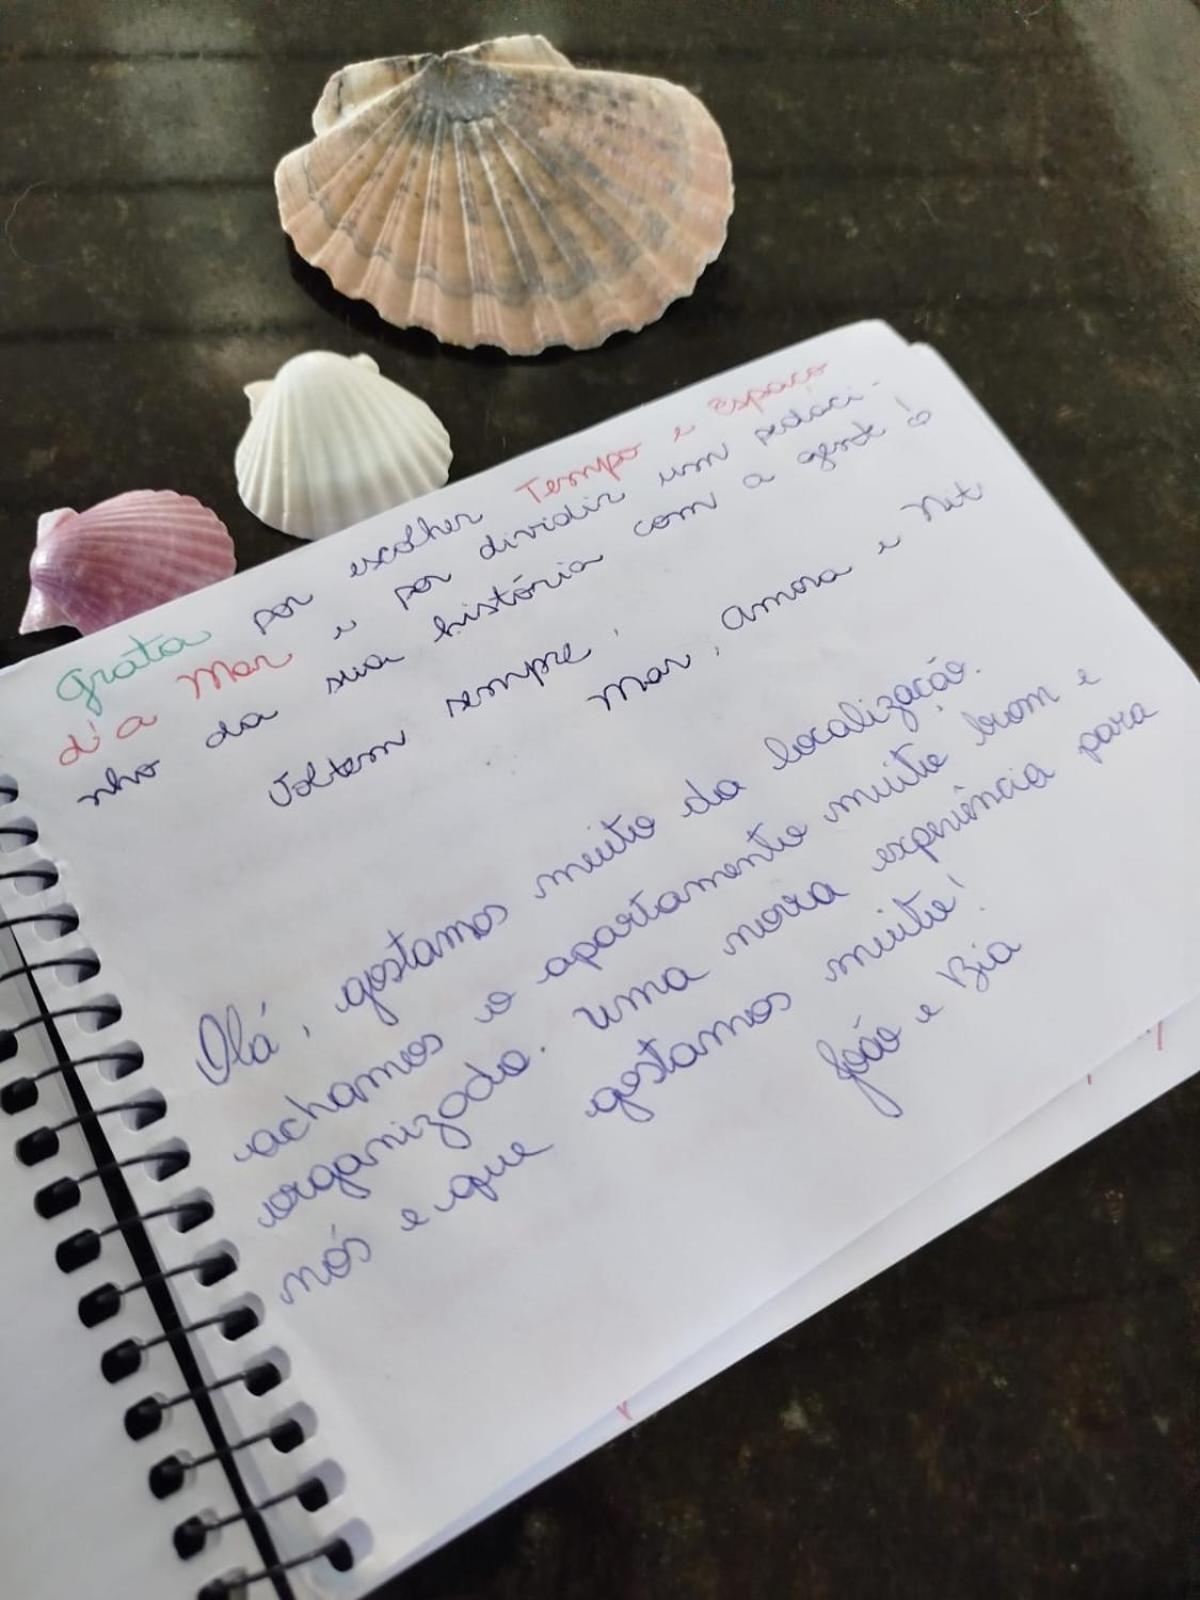 Grata por escolher Tempo e Espaço
d'a Mar e por dividir um pedaci-
nho da sua história com a gente!
Voltem sempre,
Mar, Amora e Nit
Olá, gostamos muito da localização.
achamos o apartamento muito bom e
organizado. Uma nova experiência para
nós e que gostamos muito!
João e Bia